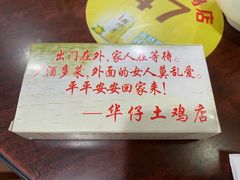 鸡店
47
出门在外,家人在等待。
少酒多菜,外面的女人莫乱爱。
平平安安回家来!
——华仔土鸡店